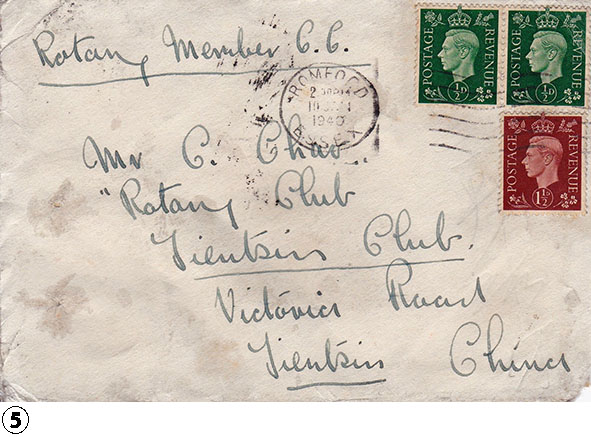 Rotary Member C.C.
POSTAGE REVENUE ½D
POSTAGE REVENUE ½D
ROMFORD
1940
ESSEX
POSTAGE REVENUE 1½D
Mr C. Chao
"Rotary Club
Tientsin Club.
Victoria Road
Tientsin China
5